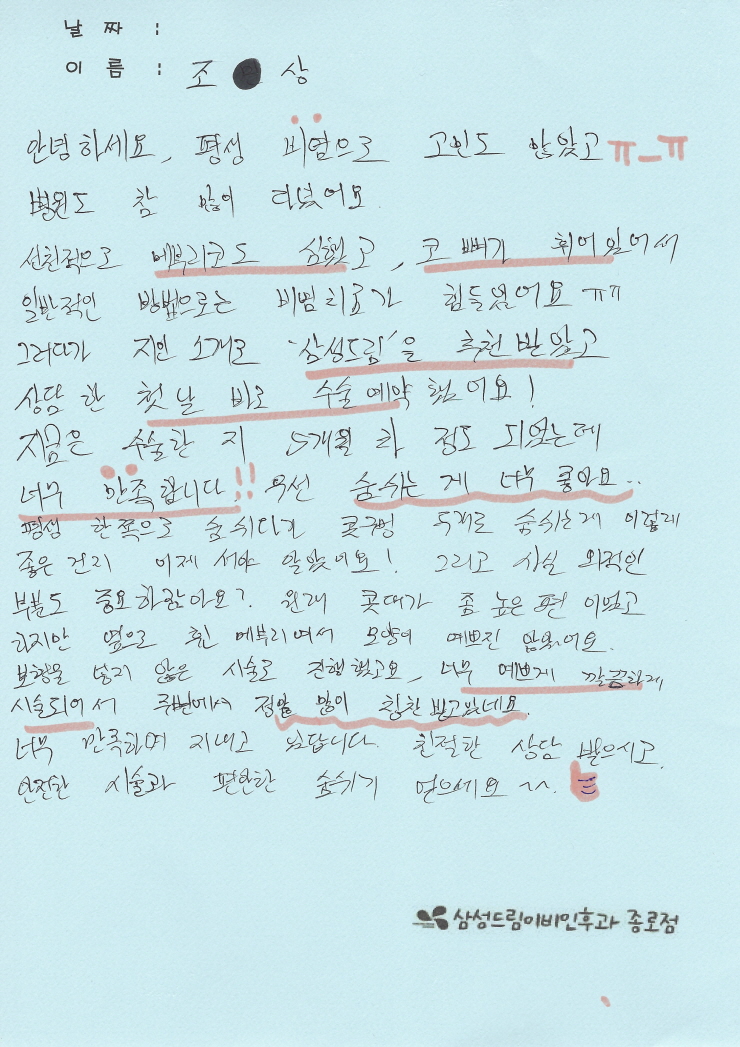 날 짜 :
이 름 : 조 상
안녕하세요, 평생 비염으로 고민도 많았고 ㅠ_ㅠ
병원도 참 많이 다녔어요
선천적으로 메부리코도 심했고, 코 뼈가 휘어있어서
일반적인 방법으로는 비염치료가 힘들었어요 ㅠㅠ
그러다가 지인 소개로 '삼성드림'을 추천 받았고
상담 한 첫날 바로 수술 예약 했어요!
지금은 수술한 지 5개월 차 정도 되었는데
너무 만족합니다!! 우선 숨쉬는 게 너무 좋아요..
평생 한쪽으로 숨쉬다가 콧구멍 두개로 숨쉬는게 이렇게
좋은건지 이제서야 알았어요! 그리고 사실 외적인
부분도 중요하잖아요? 원래 콧대가 좀 높은 편 이었고
하지만 옆으로 휜 메부리여서 모양이 예쁘진 않았어요.
보형물 넣지 않은 시술로 진행했고요, 너무 예쁘게 깔끔하게
시술되어서 주변에서 정말 많이 칭찬 받고있네요.
너무 만족하며 지내고 있답니다. 친절한 상담 받으시고,
안전한 시술과 편안한 숨쉬기 얻으세요 ^^.
삼성드림이비인후과 종로점